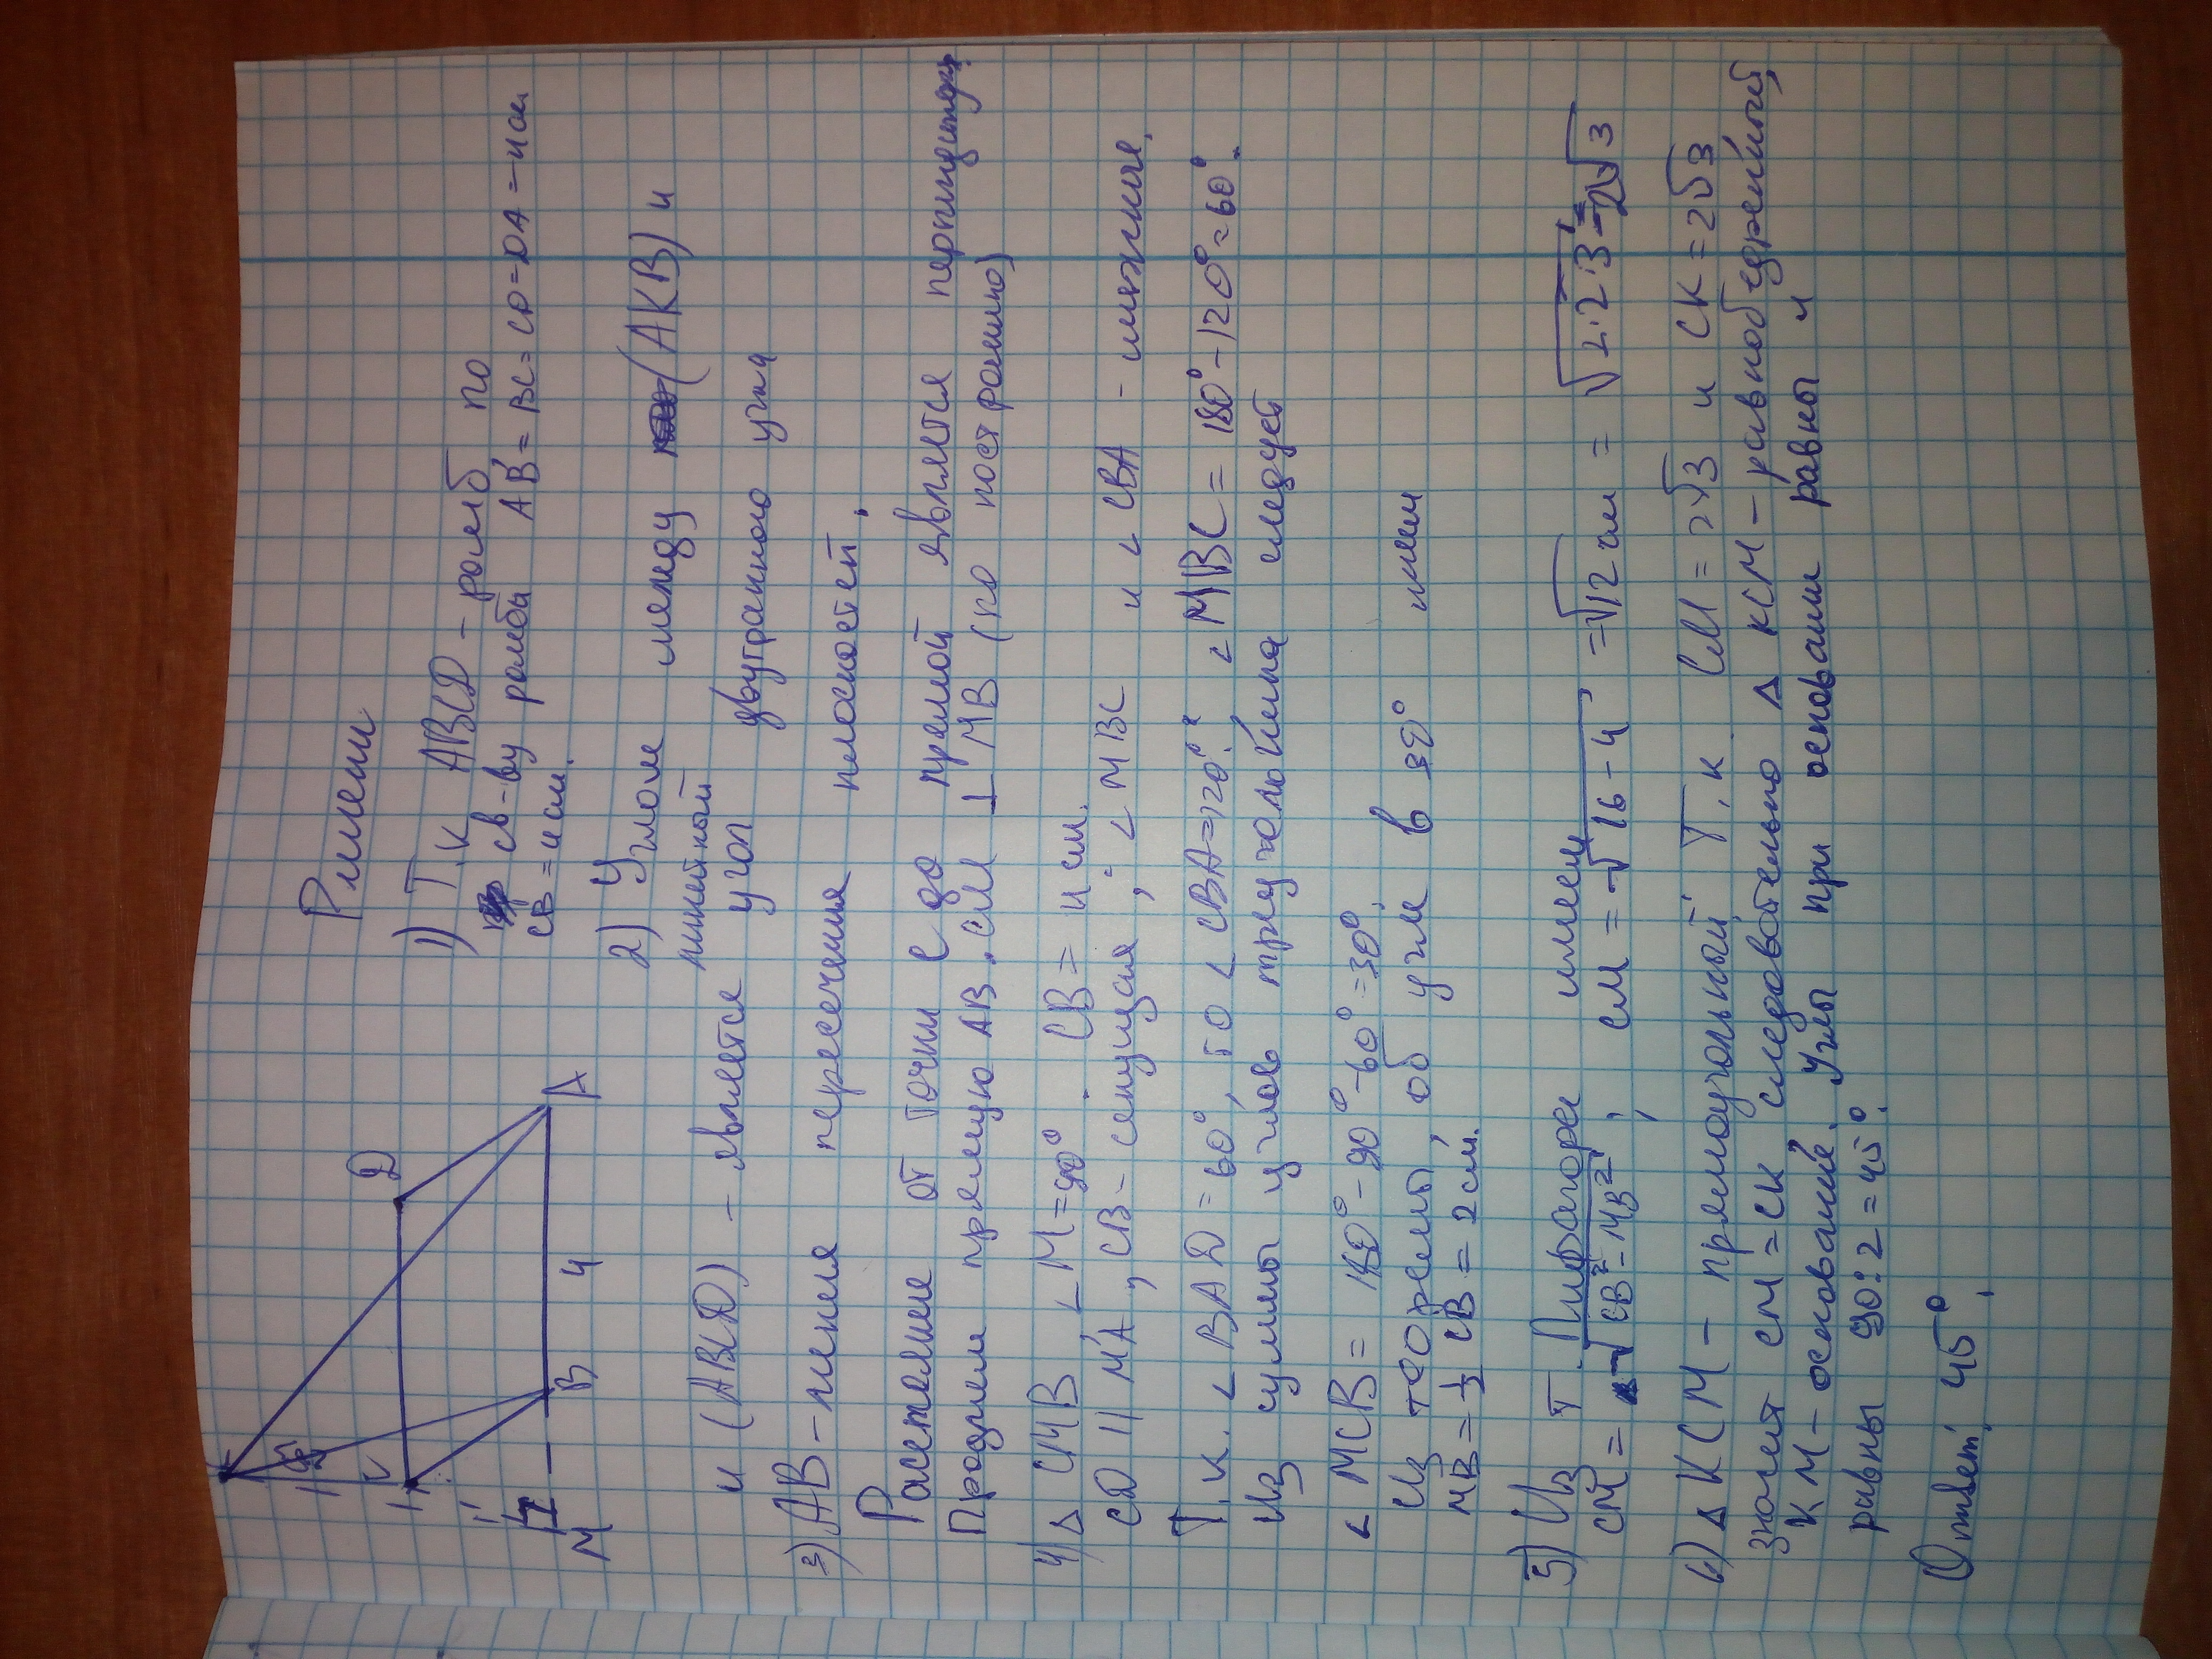 Решени
1) Т.к ABCD - ромб по
св-ву ромба AB = BC = CD = DA = 4 см.
CB = 4 см.
2) Углом между (AKB) и
и (ABCD) - является линейный угол двугранного угла
3) AB - линия пересечения плоскостей.
Расстояние от точки C до прямой является перпендикуляр.
Продлем прямую AB. CM ⊥ MB (по построению)
4) Δ CMB ∠M = 90°. CB = 4 см.
CD || MA, CB - секущая, ∠MBC и ∠CBA - смежные.
Т.к. ∠BAD = 60°, то ∠CBA = 120°. ∠MBC = 180° - 120° = 60°.
Из суммы углов треугольника следует
∠MCB = 180° - 90° - 60° = 30°.
Из теоремы об угле в 30° имеем
MB = ½ CB = 2 см.
5) Из т. Пифагора имеем
CM = √CB² - MB², CM = √16 - 4 = √12 см = √2·2·3 = 2√3
6) Δ KCM - прямоугольный Т.к CM = 2√3 и CK = 2√3
значет CM = CK следовательно Δ KCM - равнобедренный,
KM - основание. Углы при основании равны и
равны 90 : 2 = 45°.
Ответ. 45°.
K
D
A
B
4
M